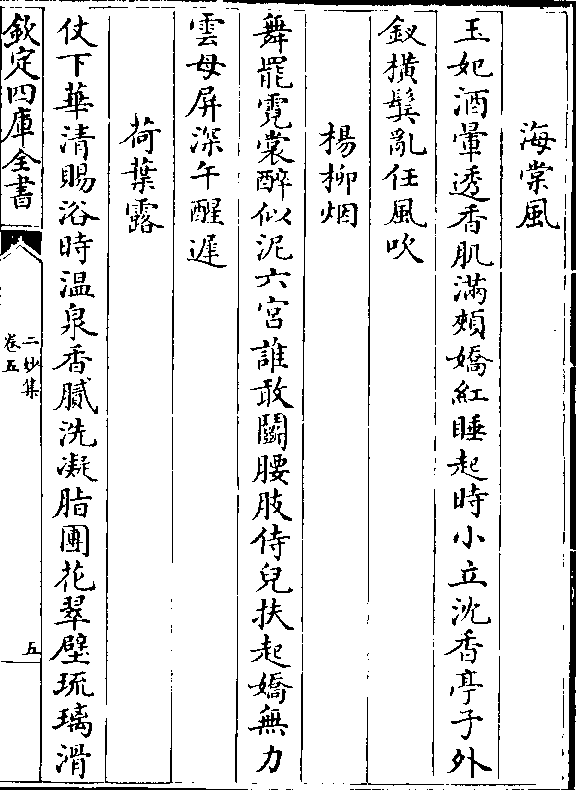 海棠風
玉妃酒暈透香肌滿頰嬌紅睡起時小立沈香亭子外
釵橫鬢亂任風吹
楊柳烟
舞罷霓裳醉似泥六宮誰敢鬭腰肢侍兒扶起嬌無力
雲母屏深午醒遲
荷葉露
仗下華清賜浴時温泉香膩洗凝脂團花翠壁琉璃滑
欽定四庫全書
二妙集
卷五
五